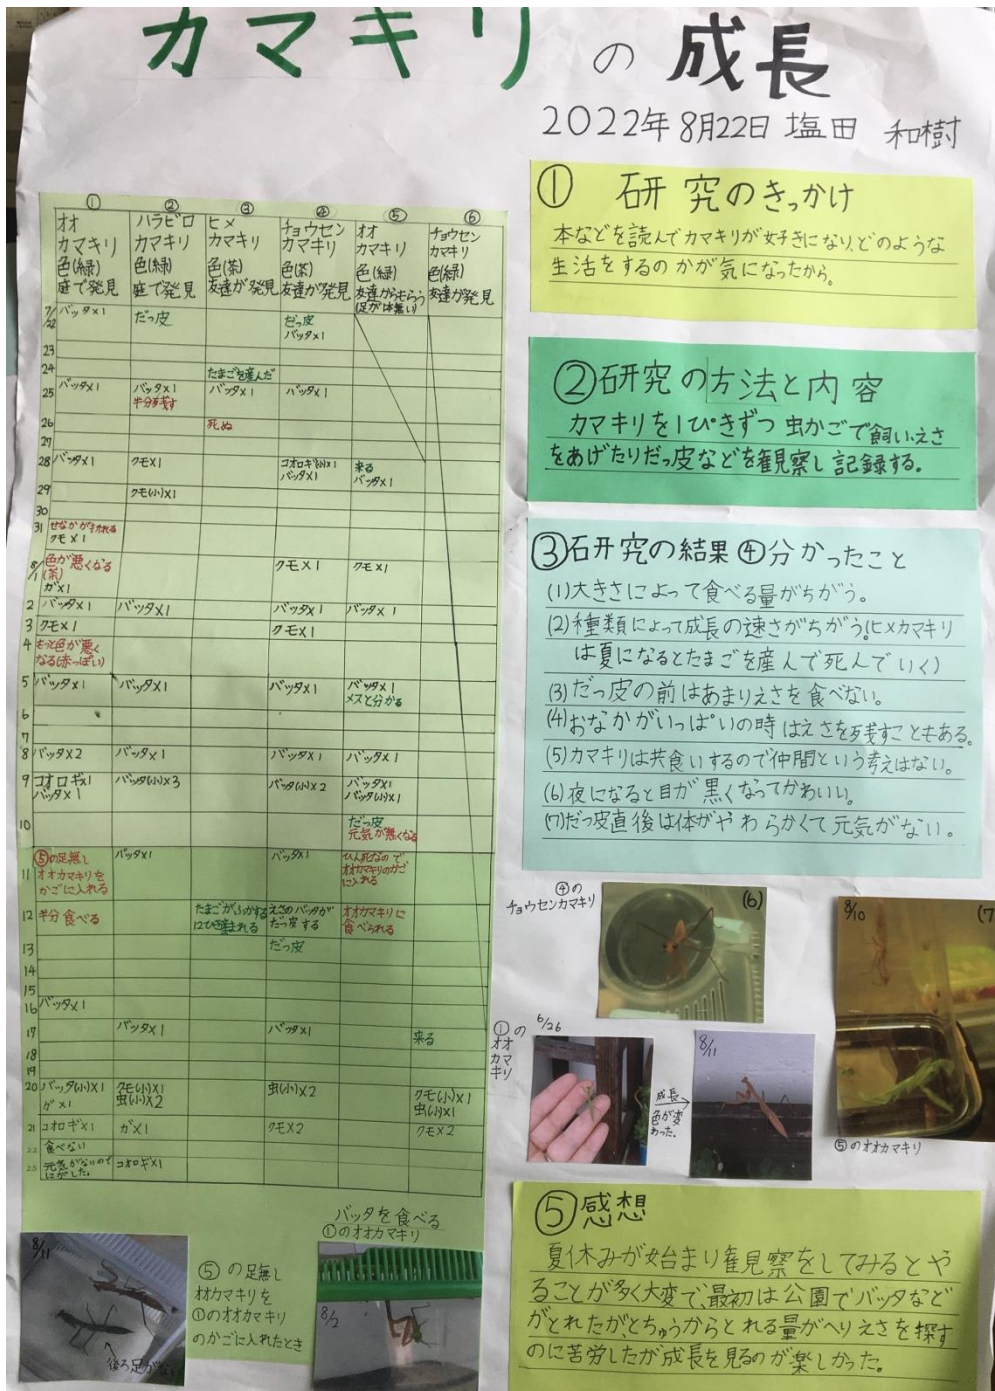 カマキリの成長
2022年8月22日 塩田 和樹
① ② ③ ④ ⑤ ⑥
オオ
カマキリ
色(緑)
庭で発見
ハラビロ
カマキリ
色(緑)
庭で発見
ヒメ
カマキリ
色(茶)
友達が発見
チョウセン
カマキリ
色(茶)
友達が発見
オオ
カマキリ
色(緑)
友達からもらう
(足が1本無い)
チョウセン
カマキリ
色(緑)
友達が発見
7/22 バッタ×1 だっ皮 だっ皮
バッタ×1
23
24 たまごを産んだ
25 バッタ×1 バッタ×1 バッタ×1 バッタ×1
半分残す
26 死ぬ
27
28 バッタ×1 クモ×1 コオロギ(小)×1 来る
バッタ×1 バッタ×1
29 クモ(小)×1
30
31 せなかがまかれる
クモ×1
8/1 色が悪くなる クモ×1 クモ×1
(茶)
ガ×1
2 バッタ×1 バッタ×1 バッタ×1 バッタ×1
3 クモ×1 クモ×1
4 もっと色が悪く
なる(赤っぽい)
5 バッタ×1 バッタ×1 バッタ×1 バッタ×1
メスと分かる
6
7
8 バッタ×2 バッタ×1 バッタ×1 バッタ×1
9 コオロギ×1 バッタ(小)×3 バッタ(小)×2 バッタ×1
バッタ×1 バッタ(小)×1
10 だっ皮
元気が無くなる
11 ⑤の足無し
オオカマキリを
かごに入れる
バッタ×1 バッタ×1
ひん死なので
オオカマキリのかご
に入れる
12 半分食べる
たまごがふかする
12ひき産まれる
えさのバッタが
だっ皮する
オオカマキリに
食べられる
13 だっ皮
14
15
16 バッタ×1
17 バッタ×1 バッタ×1 来る
18
19
20 バッタ(小)×1 クモ(小)×1 虫(小)×2 クモ(小)×1
ガ×1 虫(小)×2 虫(小)×1
21 コオロギ×1 ガ×1 クモ×2 クモ×2
22 食べない
23 元気がないので コオロギ×1
にがした。
① 研究のきっかけ
本などを読んでカマキリが好きになり、どのような
生活をするのかが気になったから。
②研究の方法と内容
カマキリを1ぴきずつ虫かごで飼い、えさ
をあげたりだっ皮などを観察し記録する。
③研究の結果 ④分かったこと
(1)大きさによって食べる量がちがう。
(2)種類によって成長の速さがちがう。(ヒメカマキリ
は夏になるとたまごを産んで死んでいく)
(3)だっ皮の前はあまりえさを食べない。
(4)おなかがいっぱいの時はえさを残すこともある。
(5)カマキリは共食いするので仲間という考えはない。
(6)夜になると目が黒くなってかわいい。
(7)だっ皮直後は体がやわらかくて元気がない。
④の
チョウセンカマキリ
(6)
8/10
(7
①の
オオ
カマ
キリ
6/26
成長
色が変
わった。
8/11
⑤のオオカマキリ
⑤感想
夏休みが始まり観察をしてみるとや
ることが多く大変で、最初は公園でバッタなど
がとれたが、とちゅうからとれる量がへりえさを探す
のに苦労したが成長を見るのが楽しかった。
8/11
後ろ足がない
⑤の足無し
オオカマキリを
①のオオカマキリ
のかごに入れたとき
バッタを食べる
①のオオカマキリ
8/2